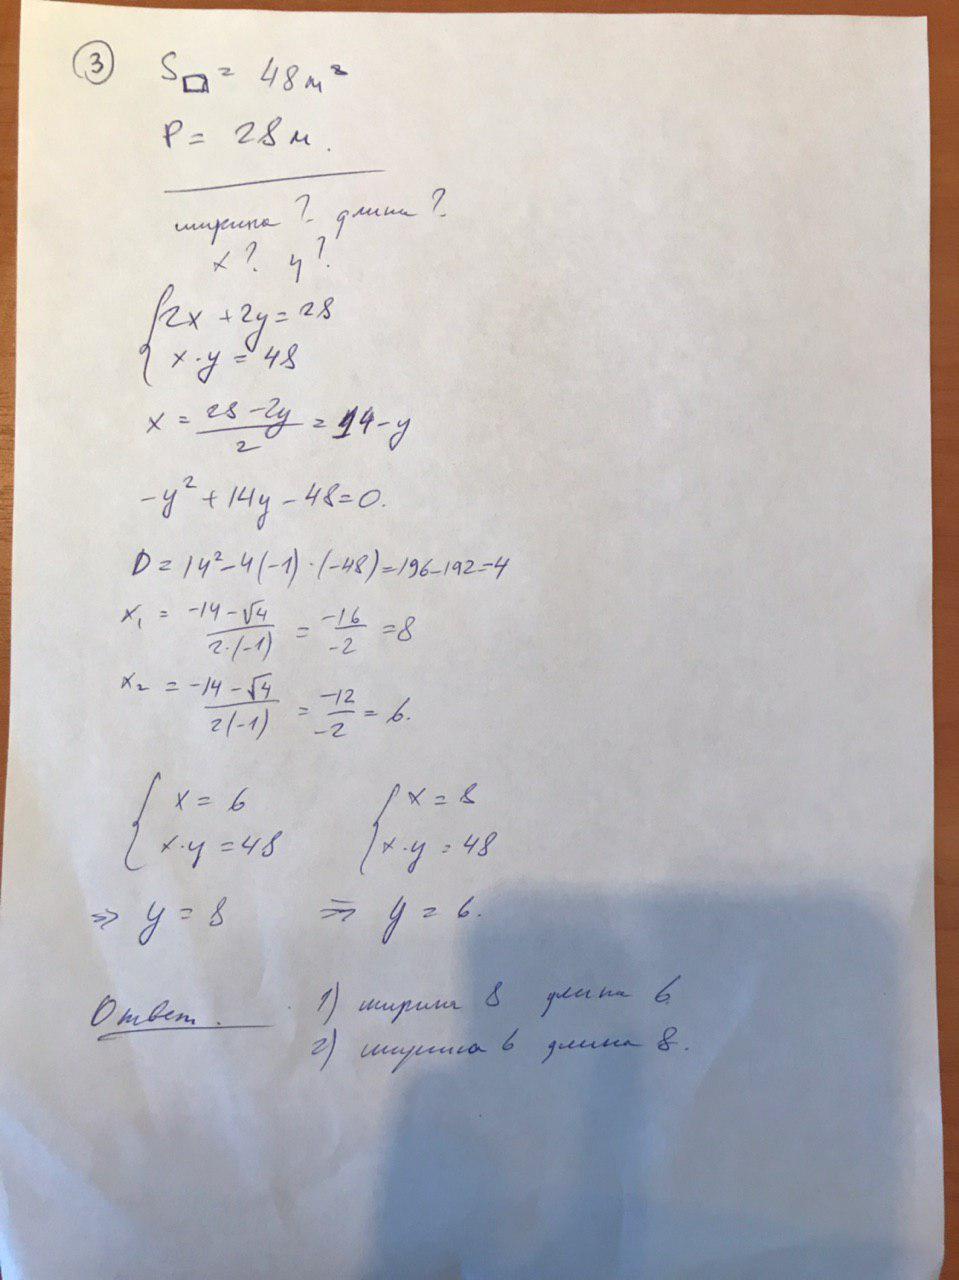 3 S▭ = 48 м²
P = 28 м.
ширина ? длина ?
x ? y ?
{ 2x + 2y = 28
{ x · y = 48
x = (28 - 2y)/2 = 14 - y
-y² + 14y - 48 = 0.
D = 14² - 4(-1) · (-48) = 196 - 192 = 4
x₁ = (-14 - √4)/(2·(-1)) = -16/-2 = 8
x₂ = (-14 - √4)/(2(-1)) = -12/-2 = 6.
{ x = 6 { x = 8
{ x·y = 48 { x·y = 48
=> y = 8 => y = 6.
Ответ. 1) ширина 8 длина 6
2) ширина 6 длина 8.